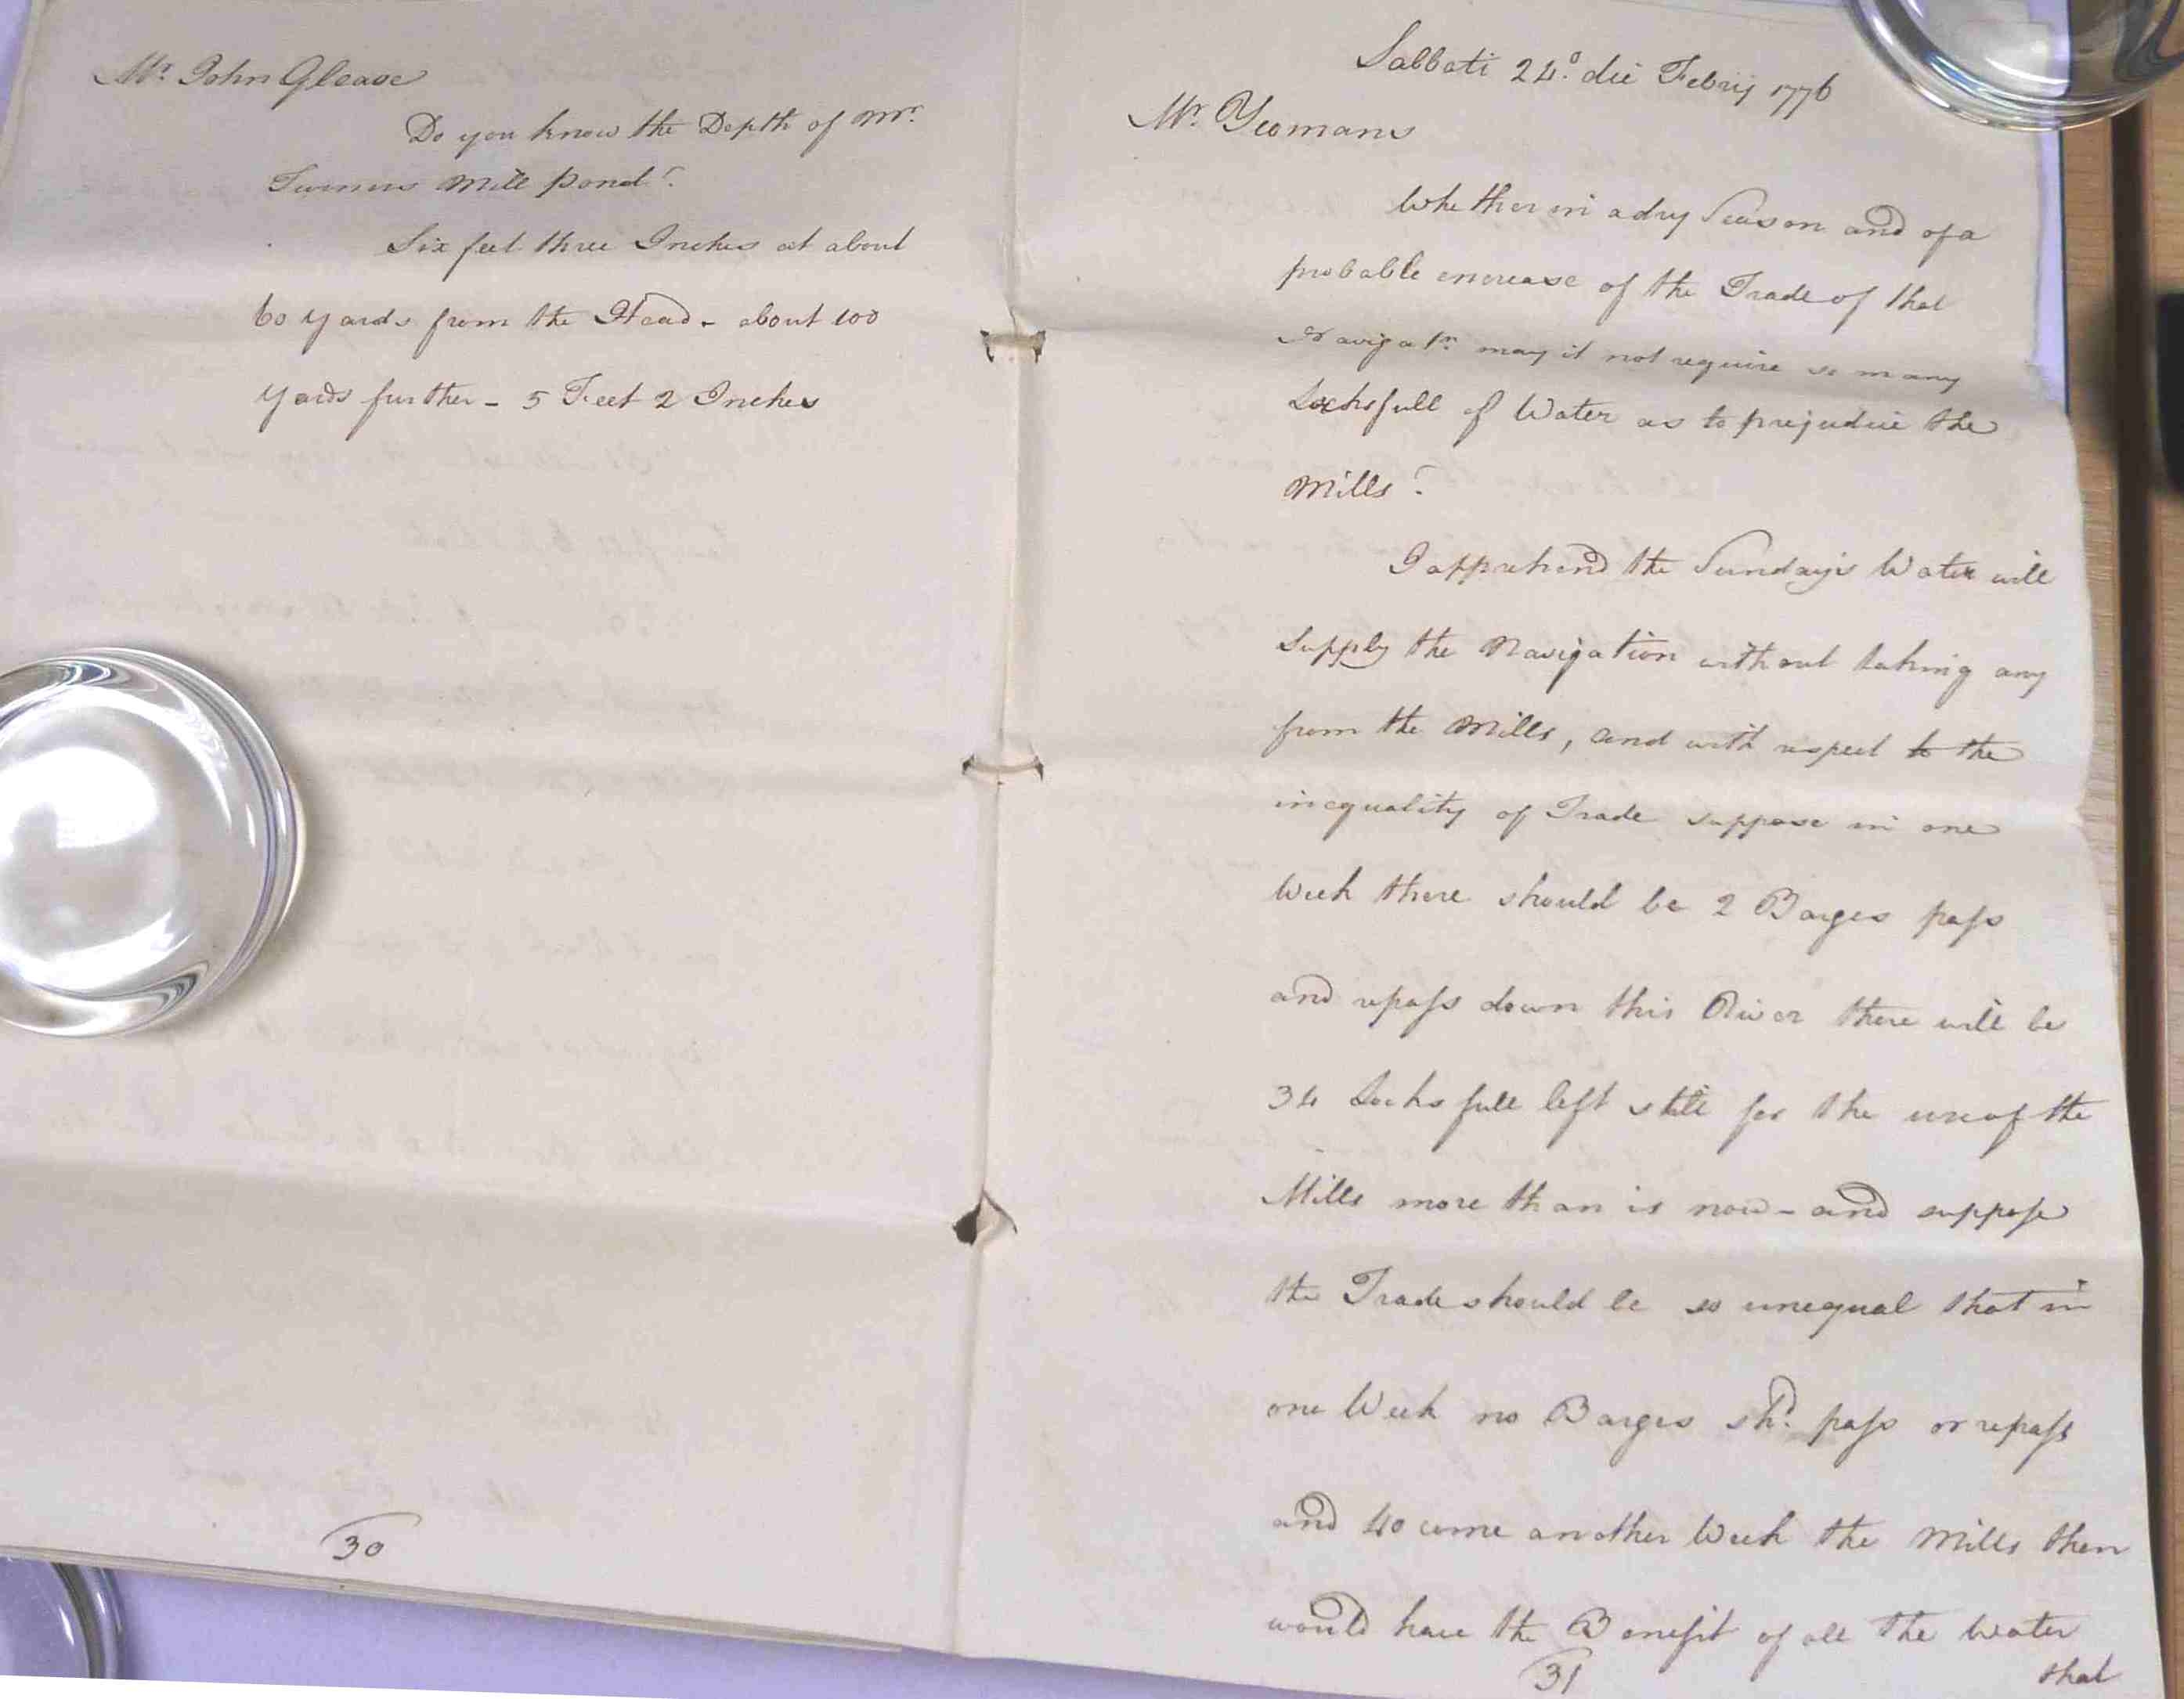 Mr. John Glease
Do you know the Depth of Mr.
Turners Mill Pond?
Six feet three Inches at about
60 Yards from the Head - about 100
Yards further - 5 Feet 2 Inches
30
Sabbati 24.º die Febrij 1776
Mr. Yeomans
Whether in a dry Season and of a
probable encrease of the Trade of that
Navigatn. may it not require so many
Locksfull of Water as to prejudice the
Mills?
I apprehend the Sunday's Water will
supply the Navigation without taking any
from the Mills, and with respect to the
inequality of Trade suppose in one
Week there should be 2 Barges pass
and repass down this River there will be
34 Locks full left still for the use of the
Mills more than is now - and suppose
the Trade should be so unequal that in
one Week no Barges shd. pass or repass
and 40 come another Week the Mills then
would have the Benefit of all the Water
31
that